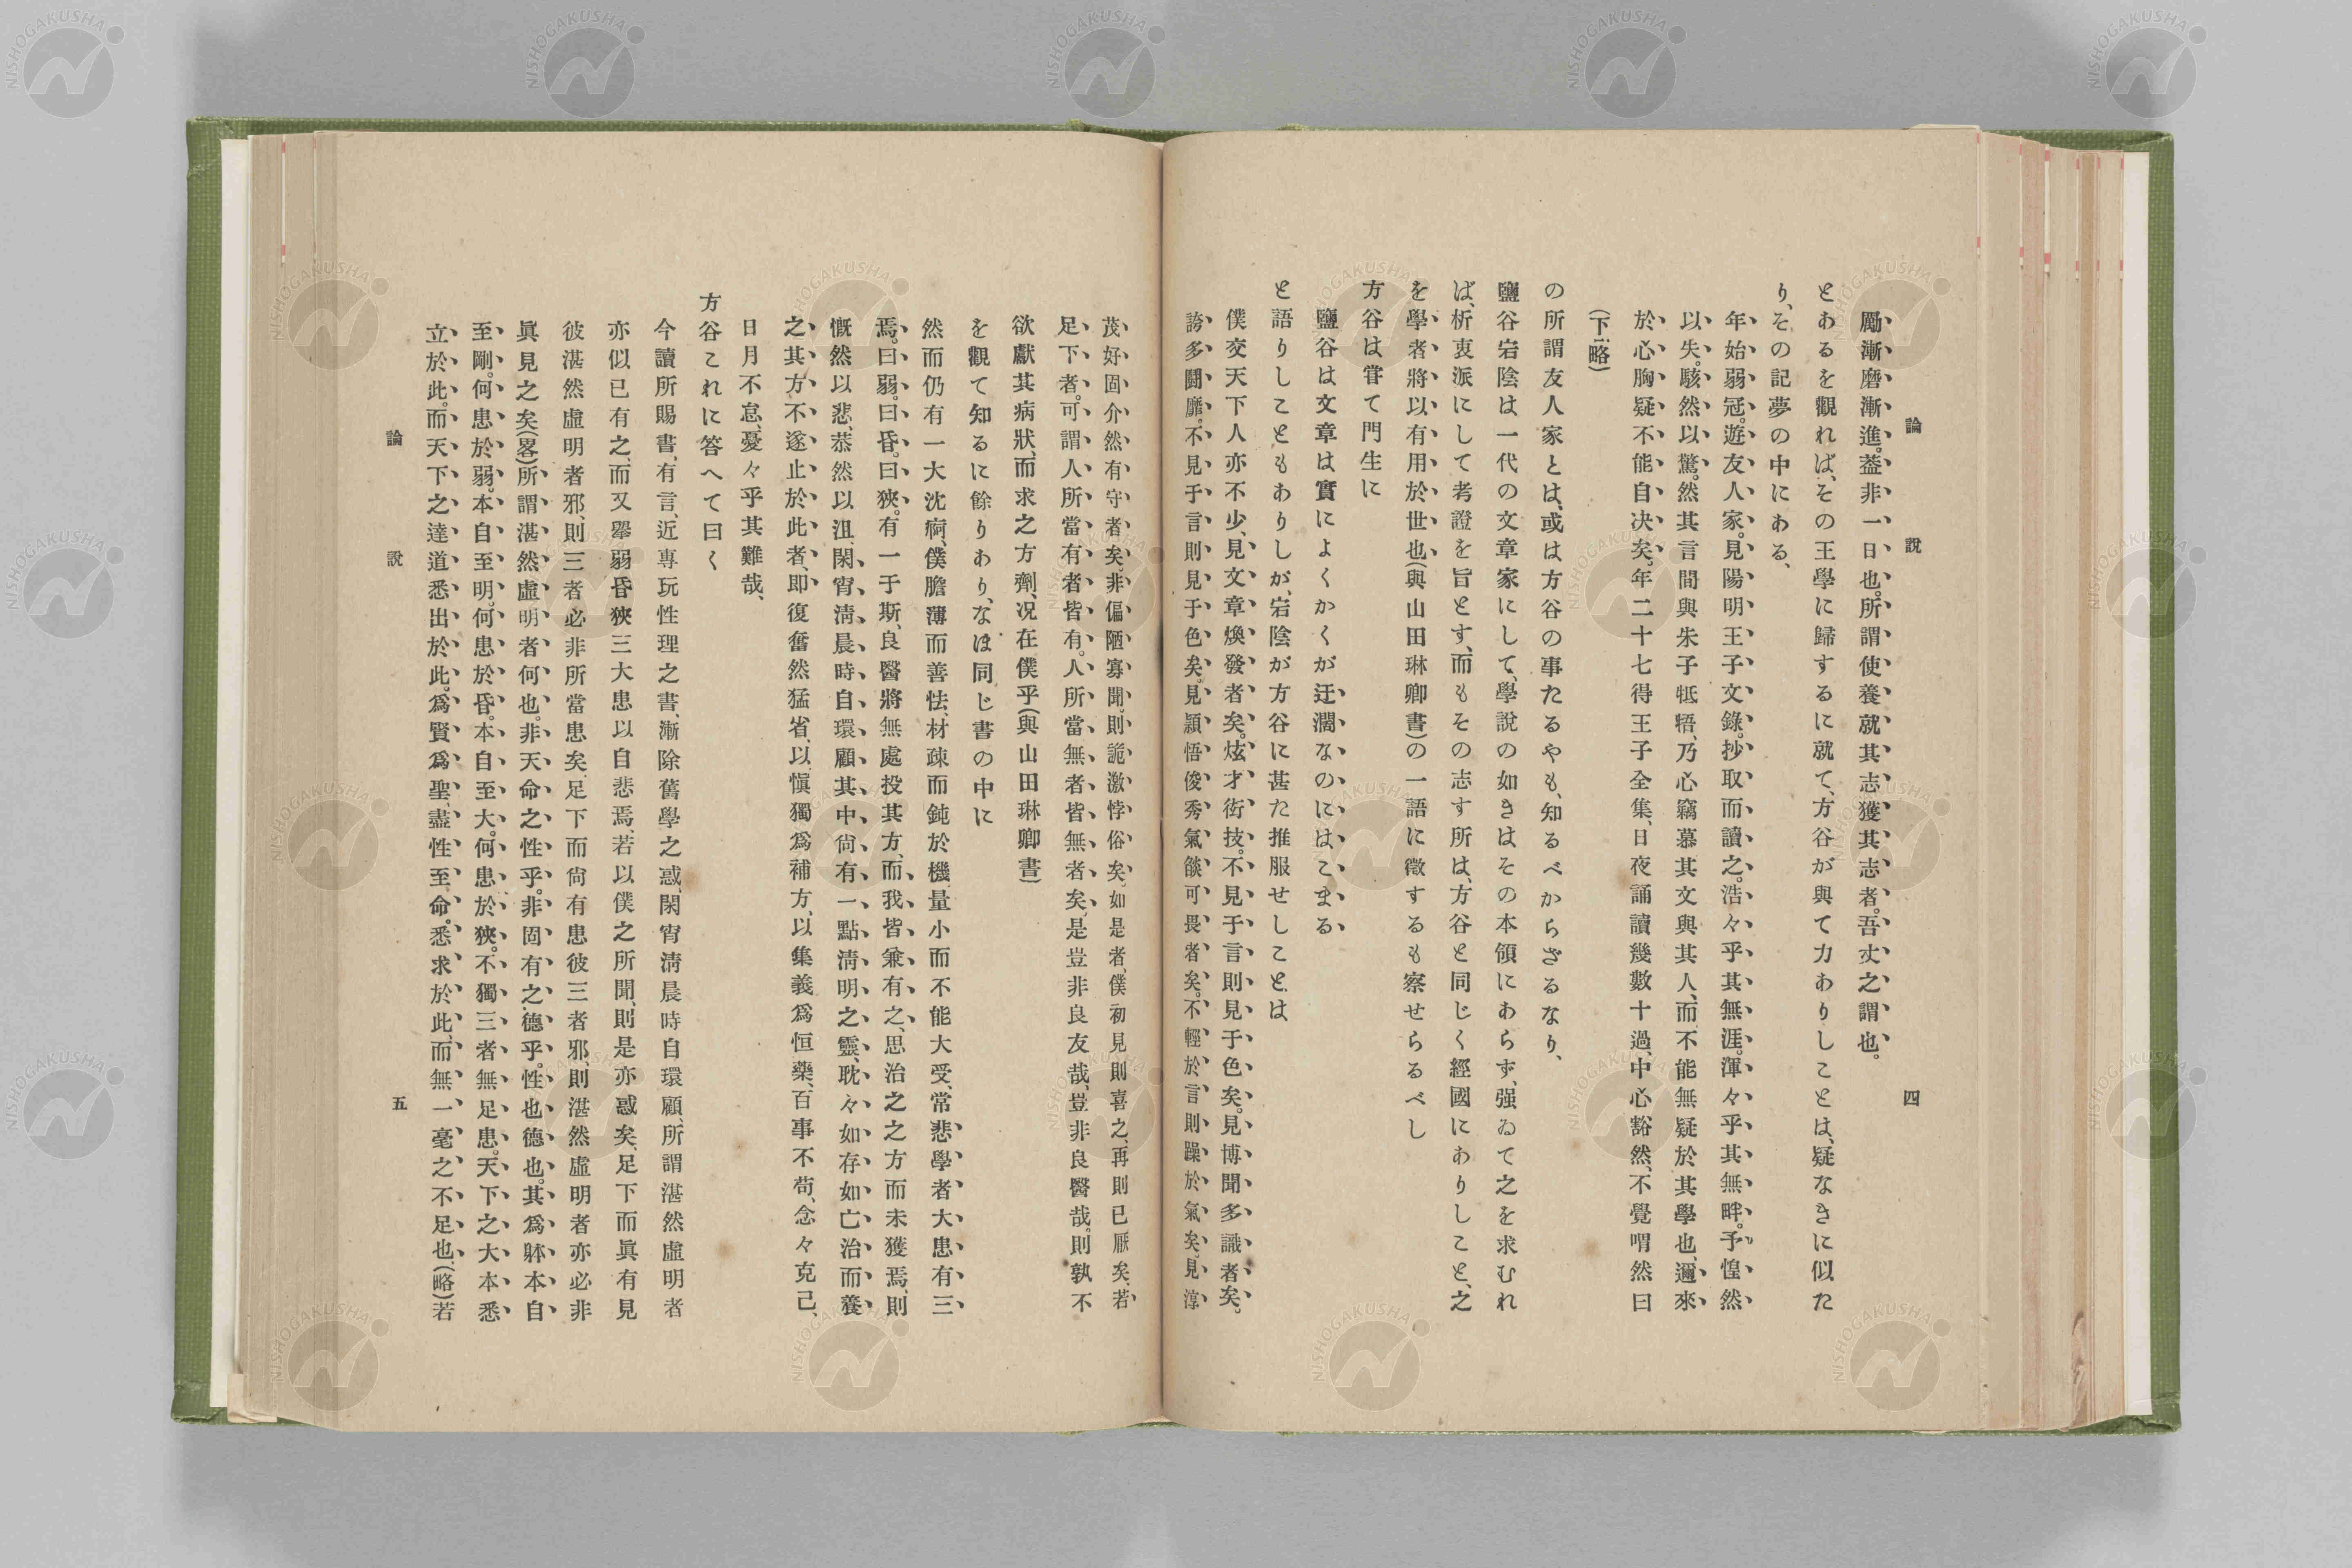 論說
四
勵漸磨漸進。葢非一日也。所謂使養就其志獲其志者。吾丈之謂也。
とあるを觀れば、その王學に歸するに就て、方谷が與て力ありしことは、疑なきに似た
り、その記夢の中にある、
年始弱冠。遊友人家。見陽明王子文錄。抄取而讀之。浩々乎其無涯。渾々乎其無畔。予惶然
以失。駭然以驚。然其言間與朱子牴牾、乃心竊慕其文與其人、而不能無疑於其學也、邇來
於心胸疑不能自决矣。年二十七得王子全集、日夜誦讀幾數十過、中心豁然、不覺喟然曰
(下略)
の所謂友人家とは、或は方谷の事たるやも、知るべからざるなり、
鹽谷宕陰は一代の文章家にして、學說の如きはその本領にあらず、强ゐて之を求むれ
ば、析衷派にして考證を旨とす、而もその志す所は、方谷と同じく經國にありしこと、之
を學者將以有用於世也(與山田琳卿書)の一語に徵するも察せらるべし
方谷は甞て門生に
鹽谷は文章は實によくかくが迂濶なのには、こまる
と語りしこともありしが、宕陰が方谷に甚た推服せしことは
僕交天下人亦不少、見文章煥發者矣。炫才衒技。不見于言則見于色矣。見博聞多識者矣。
誇多鬪靡。不見于言則見于色矣。見穎悟俊秀氣燄可畏者矣。不輕於言則躁於氣矣。見淳
茂好固介然有守者矣。非偏陋寡聞。則詭激悖俗矣。如是者、僕初見則喜之、再則已厭矣、若
足下者。可謂人所當有者皆有。人所當無者皆無者矣、是豈非良友哉、豈非良醫哉。則孰不
欲獻其病狀、而求之方劑、况在僕乎(與山田琳卿書)
を觀て知るに餘りあり、なほ同じ書の中に
然而仍有一大沈痾、僕膽薄而善怯、材疎而鈍於機、量小而不能大受、常悲學者大患有三
焉。曰弱。曰昏。曰狹。有一于斯、良醫將無處投其方、而我皆兼有之、思治之之方而未獲焉、則
慨然以悲、恭然以沮、閑宵淸晨時自環顧其中尙有一點淸明之靈、耽々如存如亡、治而養
之其方不遂止於此者、即復奮然猛省、以愼獨爲補方、以集義爲恒藥、百事不苟、念々克己、
日月不怠、憂々乎其難哉、
方谷これに答へて曰く
今讀所賜書、有言、近專玩性理之書、漸除舊學之惑、閑宵淸晨時自環顧、所謂湛然虛明者
亦似已有之、而又舉弱昏狹三大患以自悲焉、若以僕之所聞、則是亦惑矣、足下而眞有見
彼湛然虛明者邪、則三者必非所當患矣、足下而尙有患彼三者邪、則湛然虛明者亦必非
眞見之矣(畧)所謂湛然虛明者何也。非天命之性乎。非固有之德乎。性也德也。其爲躰本自
至剛。何患於弱。本自至明。何患於昏。本自至大。何患於狹。不獨三者無足患。天下之大本悉
立於此。而天下之達道悉出於此。爲賢爲聖、盡性至命。悉求於此、而無一毫之不足也、(略)若
論說
五
NISHOGAKUSHA